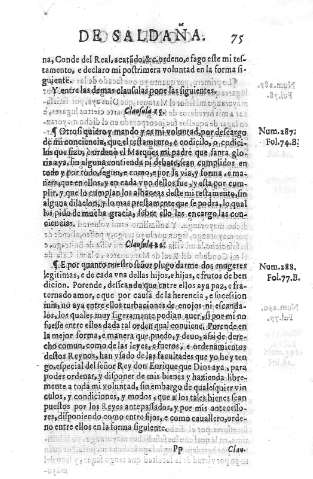 DE SALDAÑA. 75
na, Conde del Real, acatãdo, &c. ordeno, e fago este mi tes-
tamento, e declaro mi postrimera voluntad en la forma si-
guiente.
Y entre las demas clausulas pone las siguientes.
Clausula 25.
¶ Otrosi quiero, y mando, y es mi voluntad, por descargo
de mi conciencia, que el testamente, e codicilo, o codici-
los que fizo, e ordenò el Marques mi padre que santa glo-
ria aya, sin alguna contienda ni debate, sean cumplidos en
todo y por todo, segun, e como, e por la via, y forma, e ma-
nera, que en ellos, y en cada vno dellos fue, y està por cum-
plir, y que lo cumplan los albaceas deste mi testamento, sin
alguna dilacion, y lo mas prestamente que se podra, lo qual
les pido de mucha gracia, sobre ello les encargo las con-
ciencias.
Num. 287.
Fol. 74. B.
Clausula 26.
¶ E por quanto nuestro señor plugo darme dos mugeres
legitimas, e de cada vna dellas hijos, e hijas, e frutos de ben
dicion. Porende, deseando que entre ellos aya paz, e fra-
ternado amor, e que por causa de la herencia, e sucession
mia, no aya entre ellos turbaciones de enojos ni escanda-
los, los quales muy ligeramente podian auer, si por mi no
fuesse entre ellos dada tal orden qual conuiene. Porende en
la mejor forma, e manera que puedo, y deuo, assi de dere-
cho comun, como de las leyes, e fueros, e ordenamientos
destos Reynos, han y vsado de las facultades que yo he y ten
go, especial del señor Rey don Enrique que Dios aya, para
poder ordenar, y disponer de mis bienes y hazienda libre-
mente a toda mi voluntad, sin embargo de qualesquier vin
culos, y condiciones, y modos, que a los tales bienes sean
puestos por los Reyes antepassados, y por mis antecesso-
res, disponiendo como entre fijos, e como cauallero, orde-
no entre ellos en la forma siguiente.
Num. 288.
Fol. 77. B.
Pp Clau-